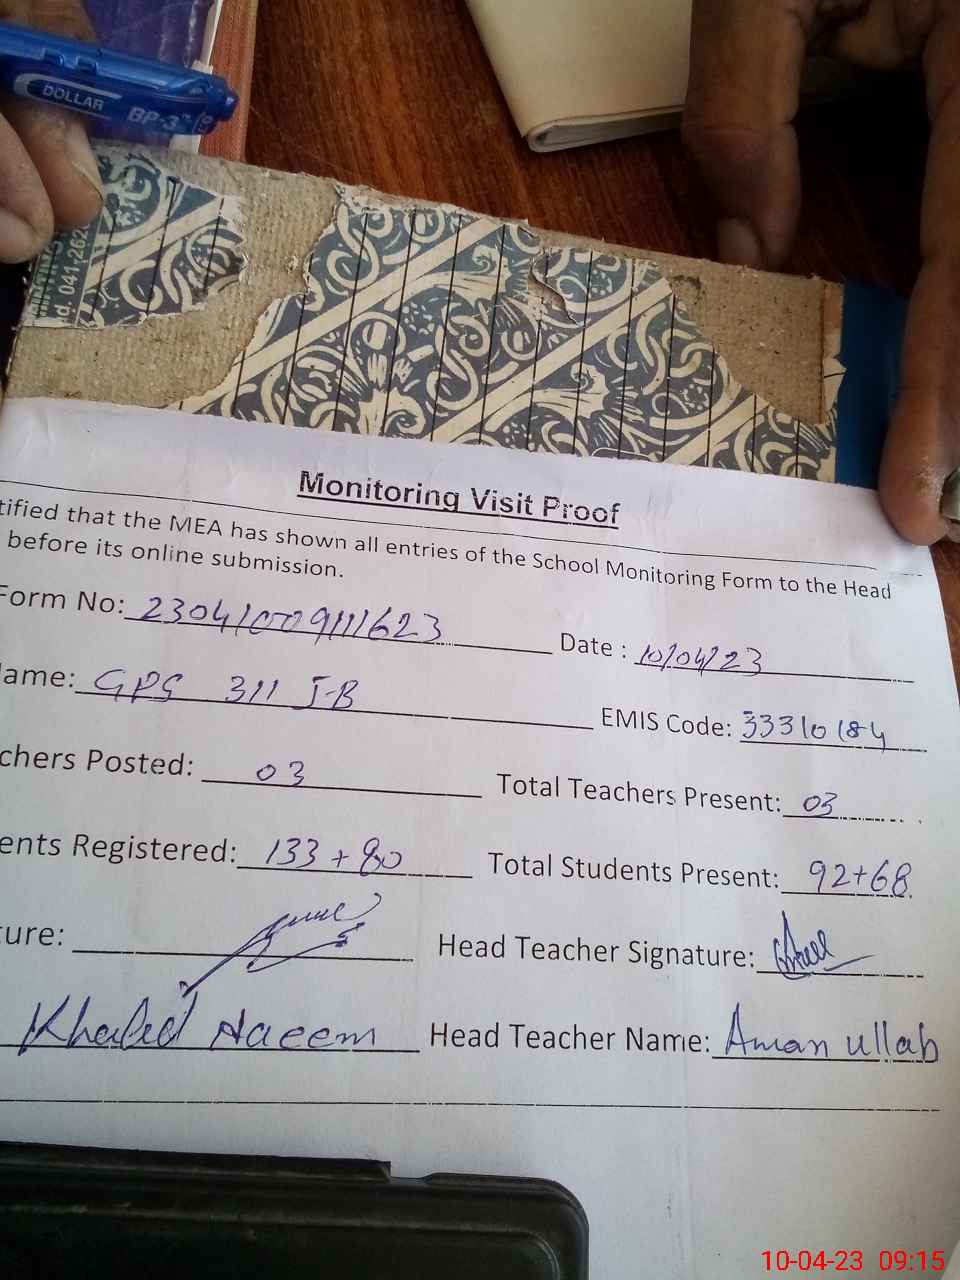 DOLLAR
BP-3™
d. 041-262
Monitoring Visit Proof
tified that the MEA has shown all entries of the School Monitoring Form to the Head
before its online submission.
Form No: 23041009111623 Date : 10/04/23
ame: GPS 311 J-B EMIS Code: 33310184
chers Posted: 03 Total Teachers Present: 03
ents Registered: 133 + 80 Total Students Present: 92+68
ture: Head Teacher Signature:
Khalid Naeem Head Teacher Name: Aman ullah
10-04-23 09:15